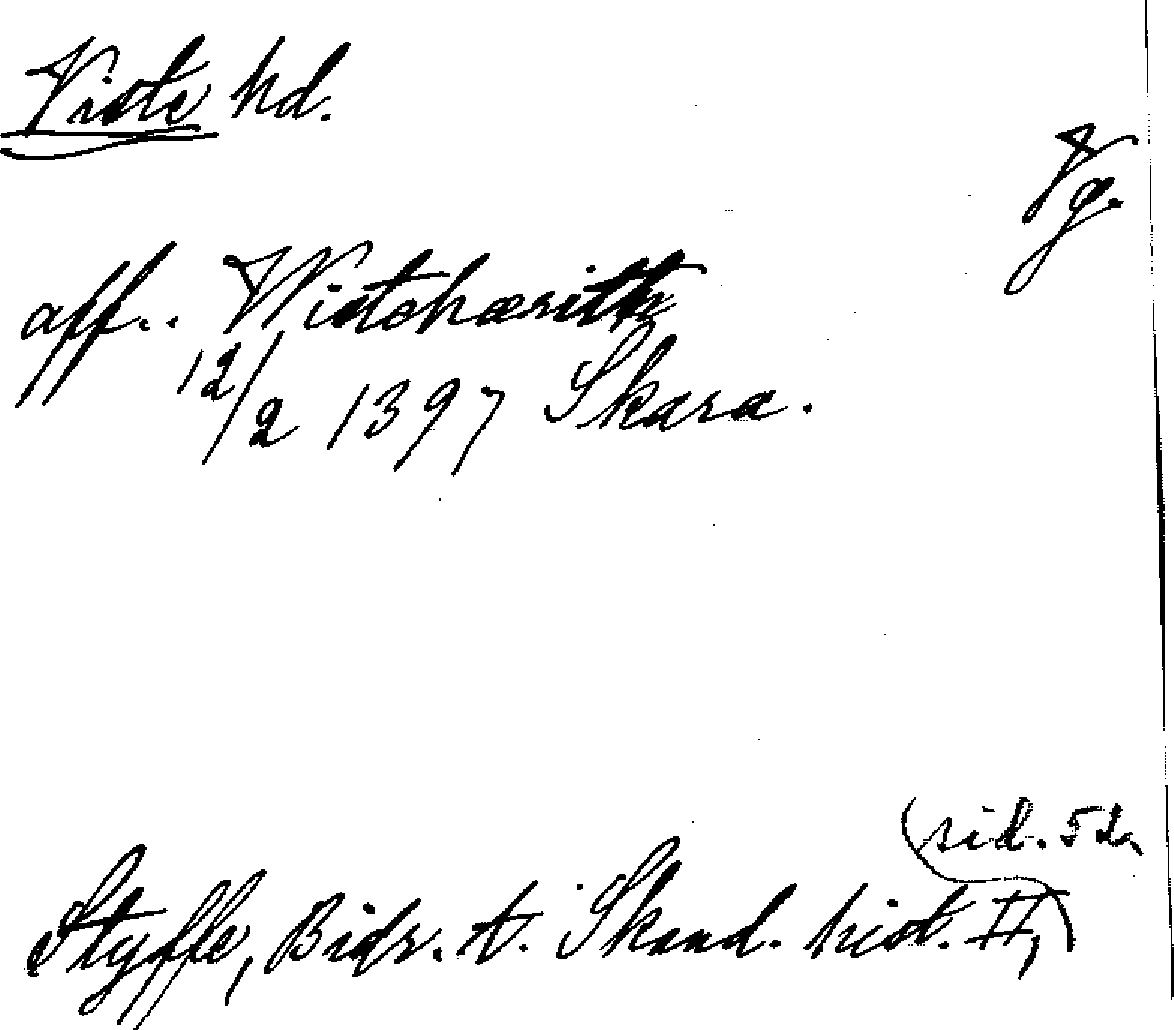 Viste hd.
Vg.
aff.. Wistehærith
12/2 1397 Skara.
Styffe, Bidr. t. Skand. hist. II,
sid. 52.